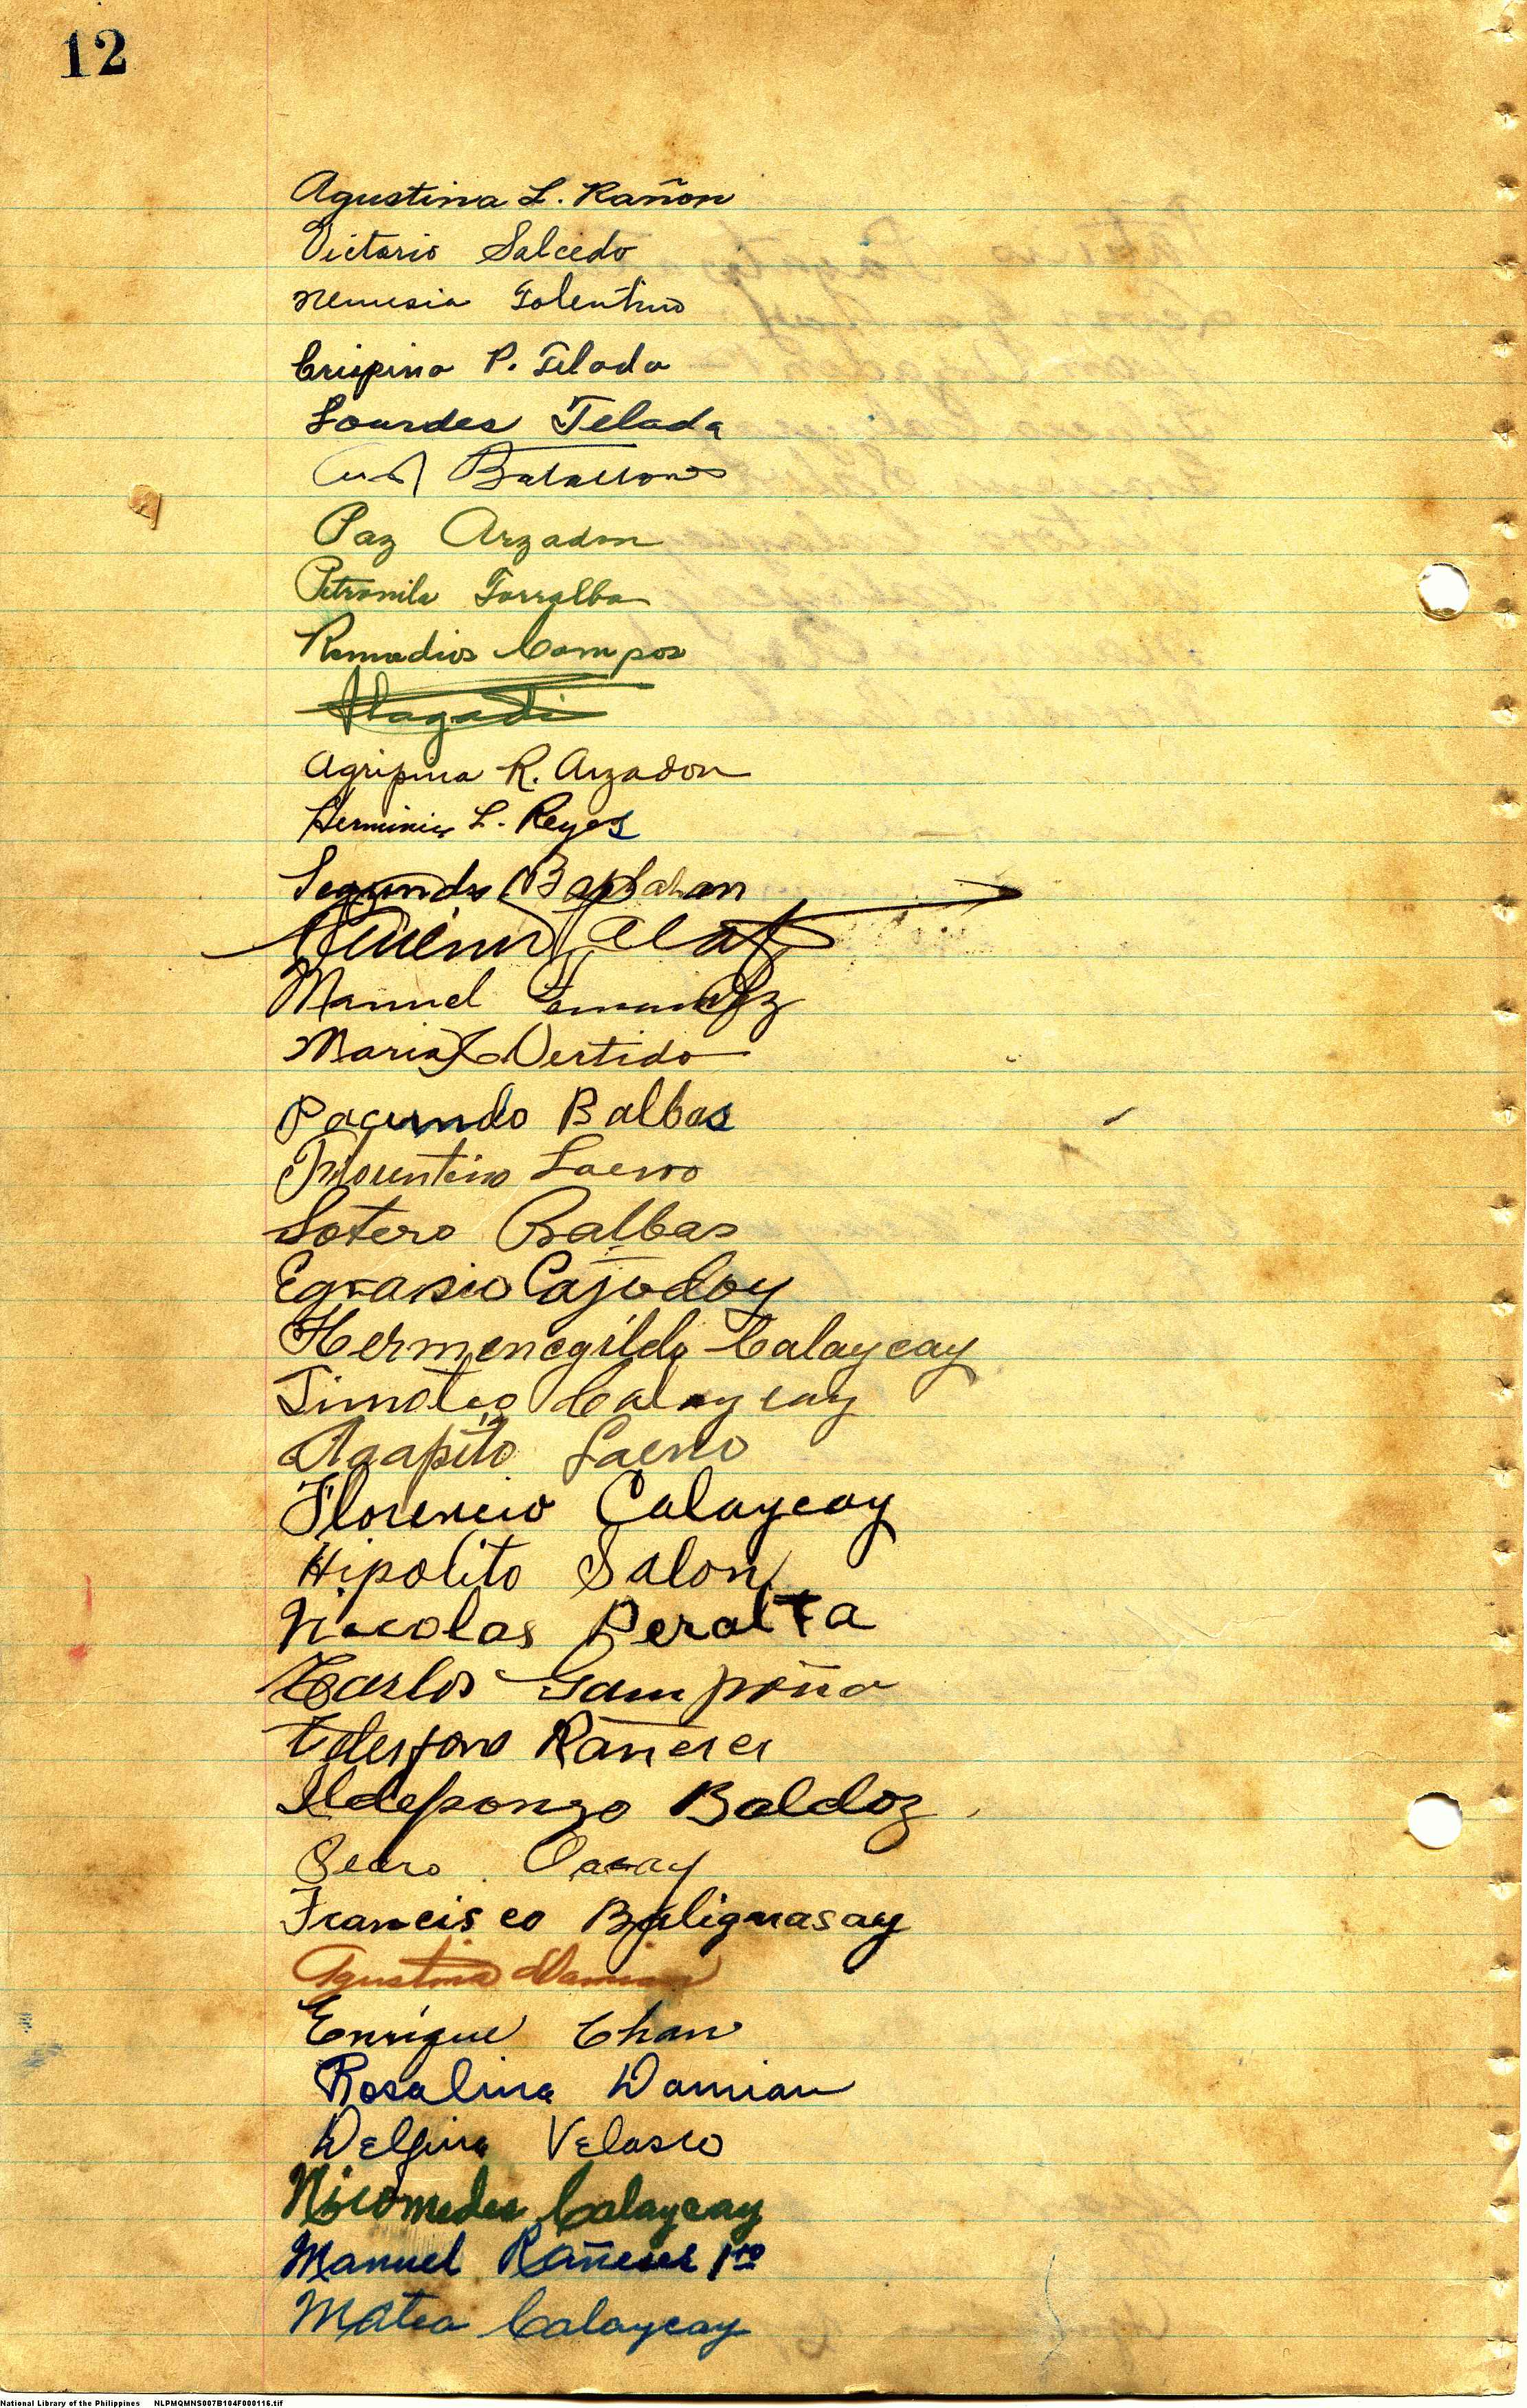 12
Agustina L. Rañon
Victorio Salcedo
Nemesia Tolentino
Crispino P. Telada
Lourdes Telada
Paz Arzadon
Petronila Torralba
Remedios Campos
Agripina R. Arzadon
Herminia L. Reyes
Segundo
Manuel
Maria Vertido
Pacundo Balbas
Laeno
Sotero Balbas
Egrasio Cajudoy
Hermenegildo Calaycay
Timoteo Calaycay
Agapito Laeno
Florencio Calaycay
Hipolito Salon
Nicolas Peralta
Carlos Gampoña
Rañeses
Ildeponzo Baldoz
Pedro
Francisco Balignasay
Agustina Damian
Enrique Chan
Rosalina Damian
Delfina Velasco
Nicomedes Calaycay
Manuel Rañeses 1ro
Matea Calaycay
National Library of the Philippines NLPMQMNS007B104F000116.tif